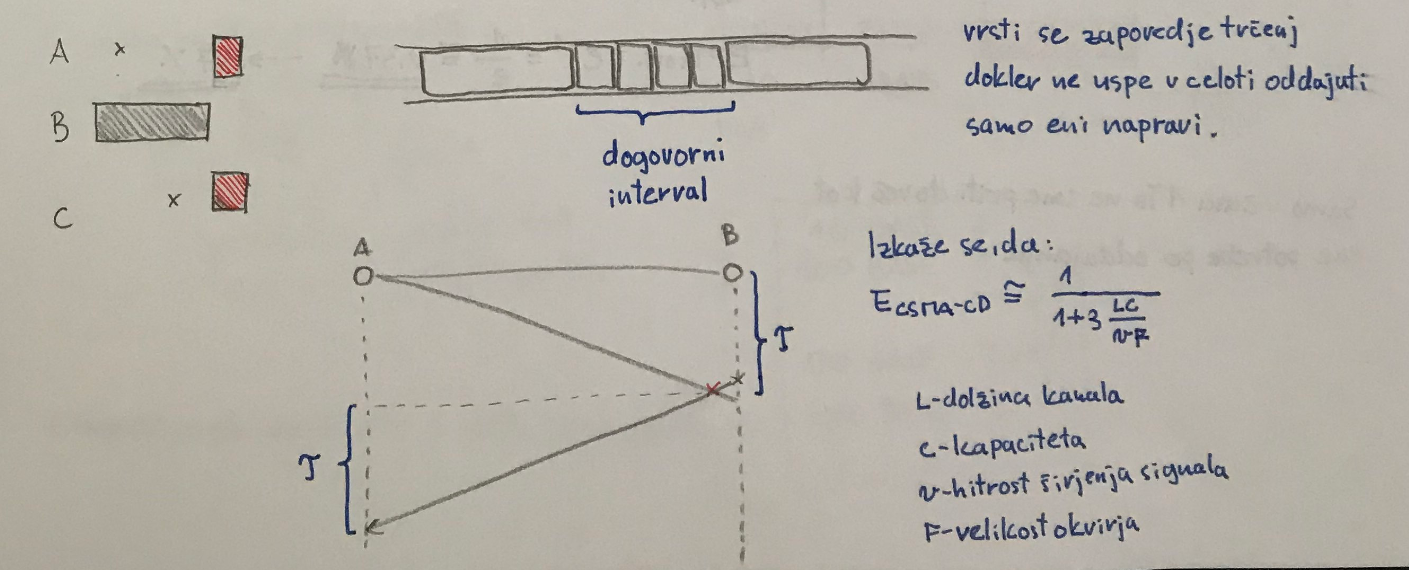 A x
B
C x
dogovorni
interval
vrsti se zapovedje trčenj
dokler ne uspe v celoti oddajati
samo eni napravi.
A
B
T
T
Izkaže se, da:
E_CSMA-CD ≅ 1 / (1+3 LC/(vF))
L-dolžina kanala
c-kapaciteta
v-hitrost širjenja signala
F-velikost okvirja